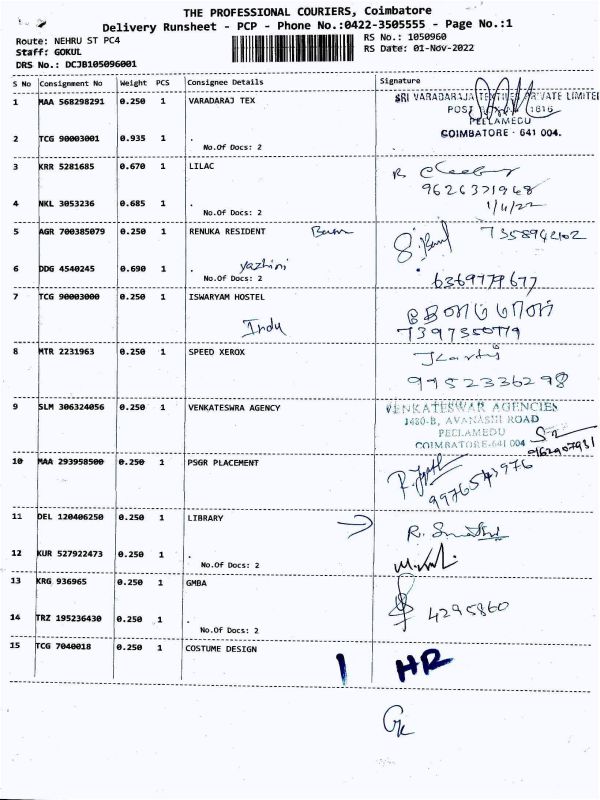 THE PROFESSIONAL COURIERS, Coimbatore
Delivery Runsheet - PCP - Phone No.:0422-3505555 - Page No.:1
Route: NEHRU ST PC4
Staff: GOKUL
DRS No.: DCJB105096001
RS No.: 1050960
RS Date: 01-Nov-2022
S No Consignment No Weight PCS Consignee Details Signature
1 MAA 568298291 0.250 1 VARADARAJ TEX
SRI VARADARAJA TEXTILES PRIVATE LIMITED
POST 1616
PEELAMEDU
COIMBATORE - 641 004.
2 TCG 90003001 0.935 1 .
No.Of Docs: 2
3 KRR 5281685 0.670 1 LILAC
R.
9626371968
1/11/22
4 NKL 3053236 0.685 1 .
No.Of Docs: 2
5 AGR 700385079 0.250 1 RENUKA RESIDENT
7358942102
6 DDG 4540245 0.690 1 . yazhini
No.Of Docs: 2
6369779677
7 TCG 90003000 0.250 1 ISWARYAM HOSTEL
Indu
7397350779
8 MTR 2231963 0.250 1 SPEED XEROX
9952336298
9 SLM 306324056 0.250 1 VENKATESWRA AGENCY
VENKATESWAR AGENCIES
1480-B, AVANASHI ROAD
PEELAMEDU
COIMBATORE-641 004
10 MAA 293958500 0.250 1 PSGR PLACEMENT
11 DEL 120406250 0.250 1 LIBRARY
12 KUR 527922473 0.250 1 .
No.Of Docs: 2
13 KRG 936965 0.250 1 GMBA
4295860
14 TRZ 195236430 0.250 1 .
No.Of Docs: 2
15 TCG 7040018 0.250 1 COSTUME DESIGN
1 HR